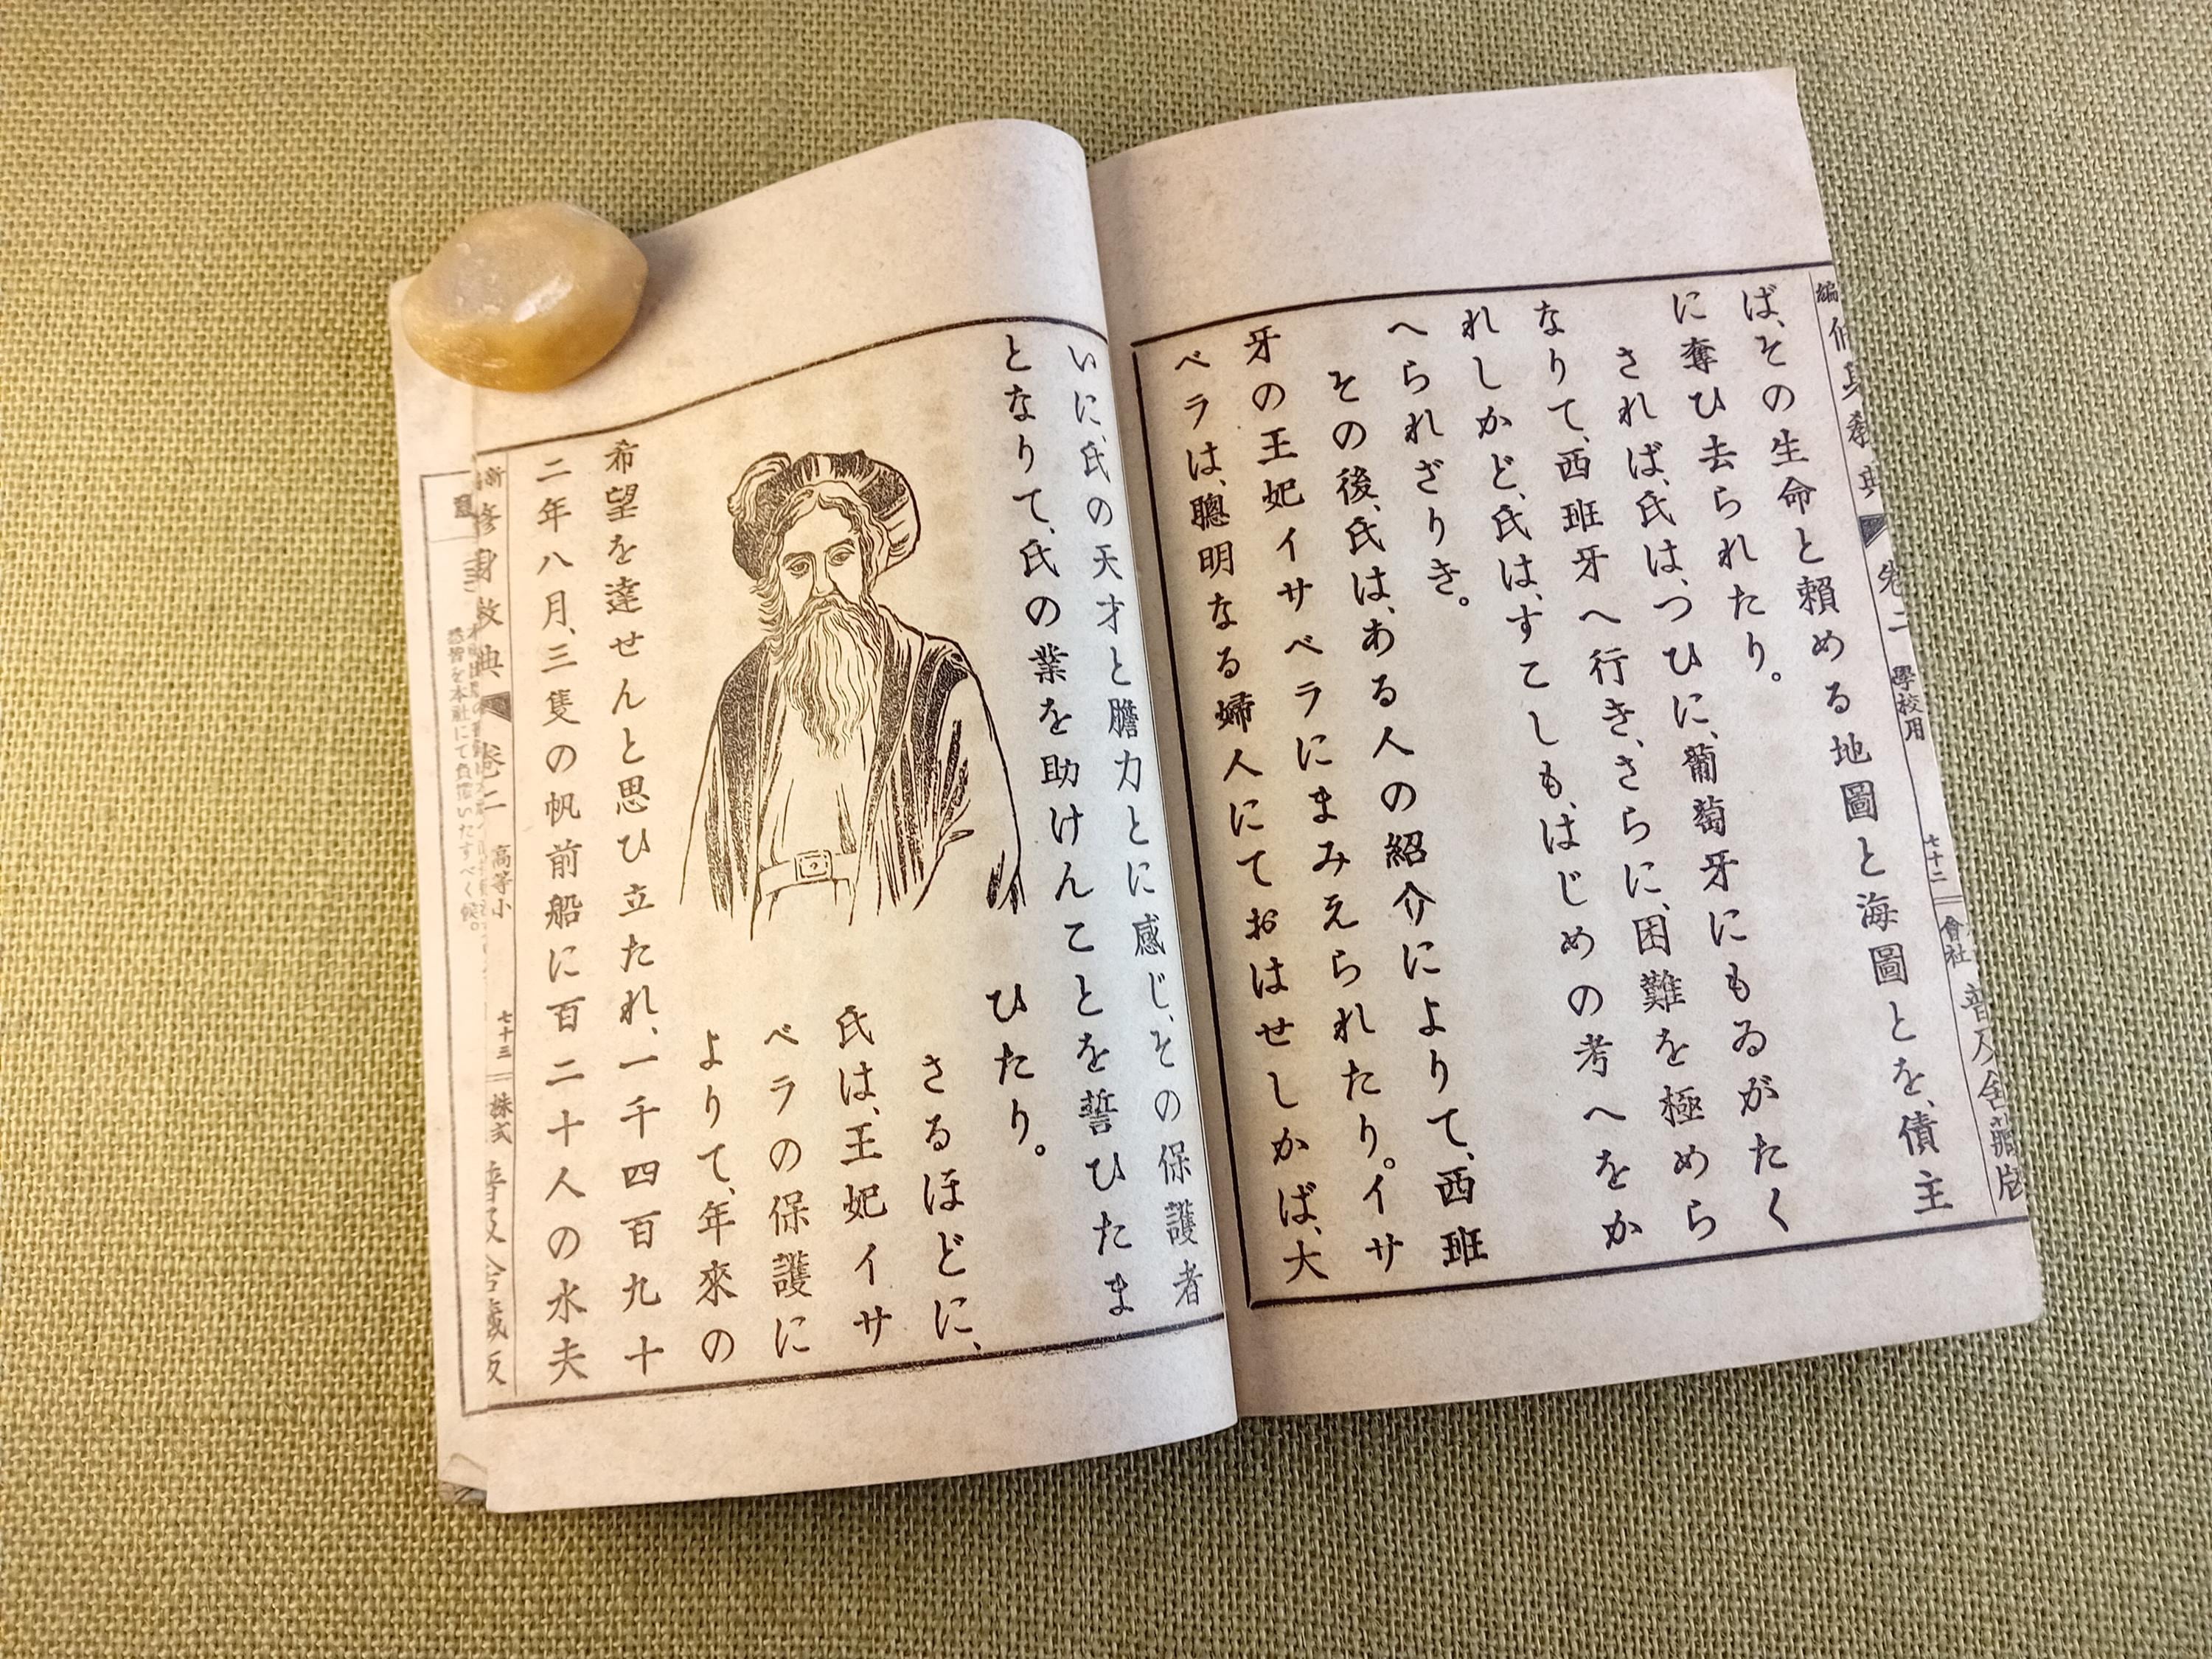 ば、その生命と頼める地圖と海圖とを、債主
に奪ひ去られたり。
されば、氏は、つひに、葡萄牙にもゐがたく
なりて、西班牙へ行き、さらに、困難を極めら
れしかど、氏は、すこしも、はじめの考へをか
へられざりき。
その後、氏は、ある人の紹介によりて、西班
牙の王妃イサベラにまみえられたり。イサ
ベラは、聰明なる婦人にておはせしかば、大
いに、氏の天才と膽力とに感じ、その保護者
となりて、氏の業を助けんことを誓ひたま
ひたり。
さるほどに、
氏は、王妃イサ
ベラの保護に
よりて、年來の
希望を達せんと思ひ立たれ、一千四百九十
二年八月、三隻の帆前船に百二十人の水夫
修身教典 卷二 高等小 七十三 株式 普及舍藏版
卷二 學校用 七十二 會社 普及舍藏版